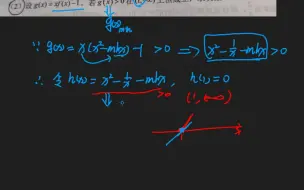 (2) 设 g(x)=xf(x)-1. 若 g(x)>0
g(x)min
∵ g(x)=x(x²-mlnx)-1 >0 ⟹ x²-1/x-mlnx>0
∴ 令 h(x)=x²-1/x-mlnx, h(1)=0
>0 (1,+∞)